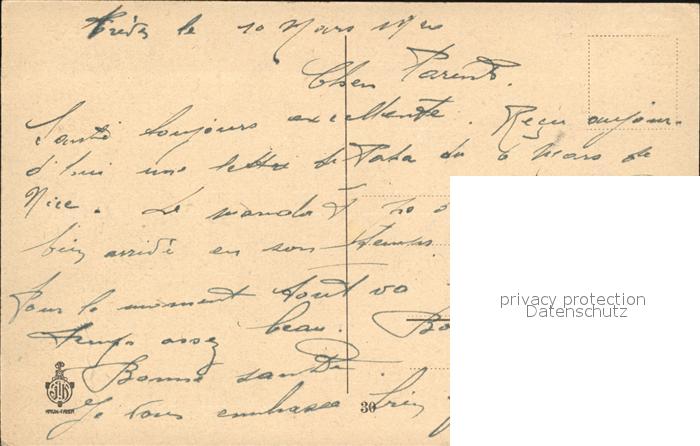 Trèves le 10 Mars 1920
Chers Parents.
Santé toujours excellente. Reçu aujour-
d'hui une lettre de Papa du 6 Mars de
Nice. Le mandat
bien arrivé en son temps
Pour le moment tout va
temps assez beau.
Bonne santé.
Je vous embrasse bien
30
privacy protection
Datenschutz